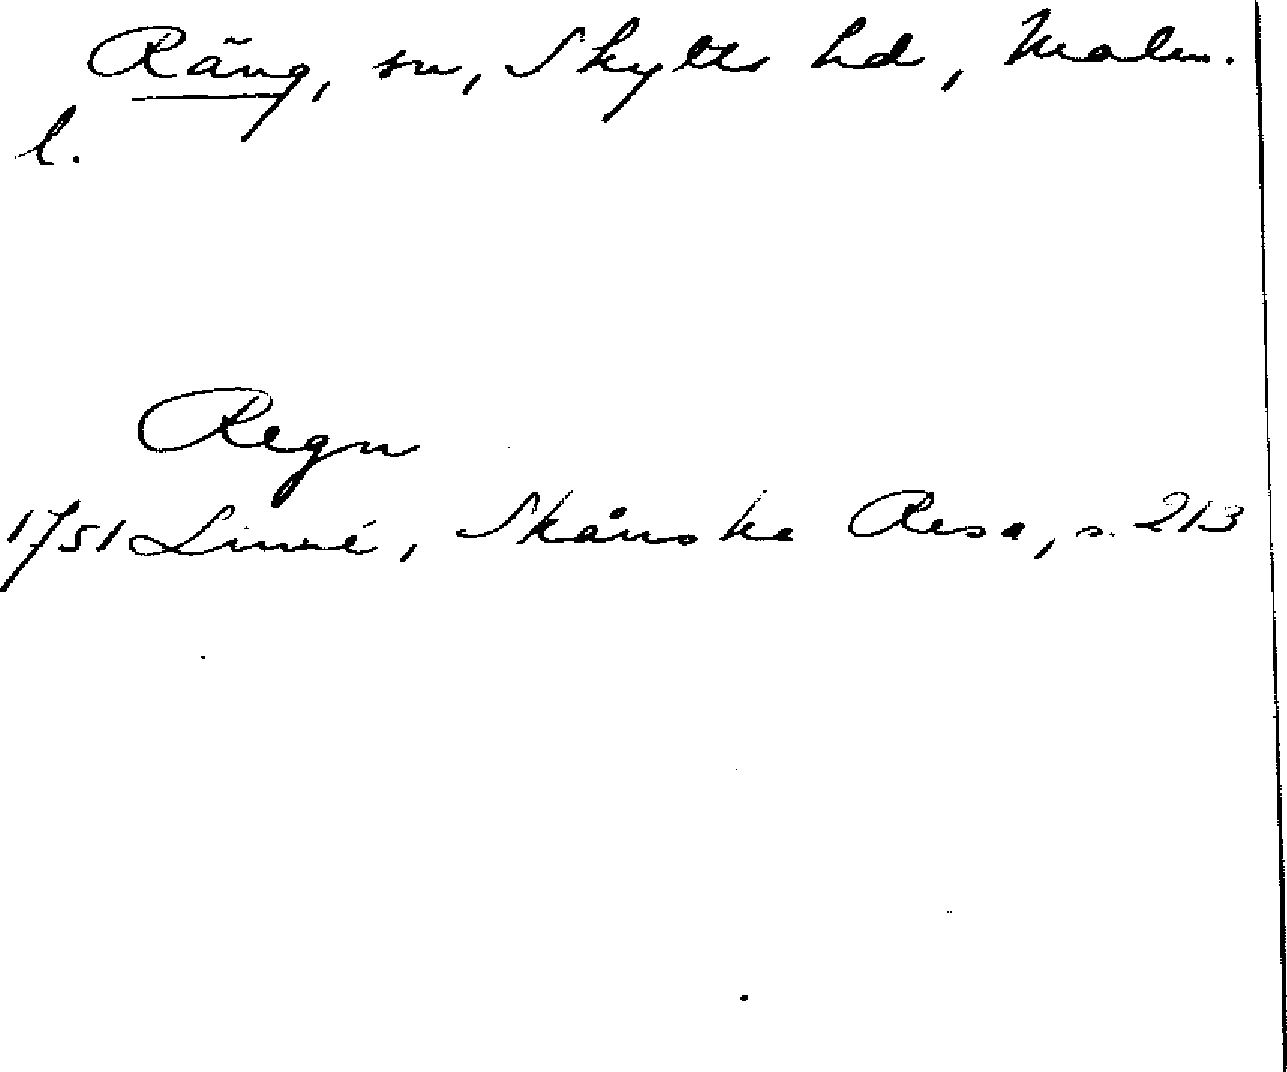 Räng, sn, Skytts hd, Malm.
l.
Regn
1751 Linné, Skånska Resa, s. 213